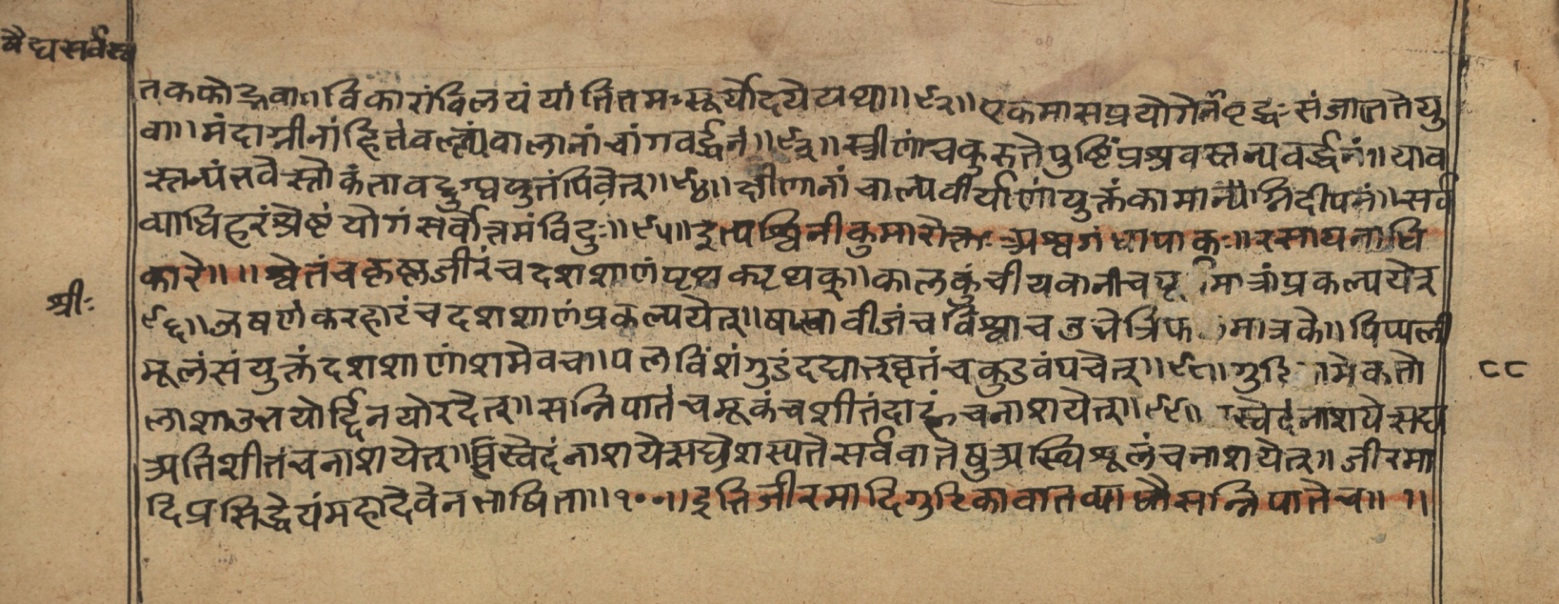 वैद्यसर्वस्व
तकफोद्भवान् विकारांविलयं यांतितमःसूर्योदये यथा॥९२॥एकमासप्रयोगेनवृद्धःसंजायतेयु
वा॥मंदाग्नीनांहितंबल्यंबालानांचांगवर्द्धनं॥९३॥स्त्रीणांचकुरुतेपुष्टिंप्रश्रवस्तन्यवर्द्धनं॥याव
स्तन्यंभवेस्तोकंतावद्दुग्धयुतंपिबेत्॥९४॥क्षीणानांचाल्पवीर्याणांयुक्तंकामान्यग्निदीपनं॥सर्व
व्याधिहरंश्रेष्टंयोगंसर्वोत्तमंविदुः॥९५॥इत्यश्विनीकुमारोक्तः अश्वगंधापाकः॥रसायनाधि
कारे॥॥श्वेतंचकृष्णजीरंचदशशाणंपृथकपृथक्॥कालकुंचीयवानीच मात्रांप्रकल्पयेत्
श्रीः
९६॥उषणंकरहाटंचदशशाणंप्रकल्पयेत्॥ विश्वाच मात्रके॥पिप्पली
मूलंसंयुक्तंदशशाणांशमेवच॥पलविंशंगुडंदद्यात्घृतंचकुडवंपचेत्॥ मेकतो
८८
लाशाउभयोर्द्दिनयोरदेत्॥सन्निपातंचमूकंचशीतंदाहंचनाशयेत्॥९९॥ स्वेदंनाशयेसद्य
अतिशीतंचनाशयेत्॥ स्वेदंनाशयेसद्यशस्यतेसर्ववातेषुअस्थिशूलंचनाशयेत्॥जीरमा
दिप्रसिद्धेयंमहादेवेनभाषिता॥१००॥इतिजीरमादिगुटिकावातव्याधौसन्निपातेच॥१।